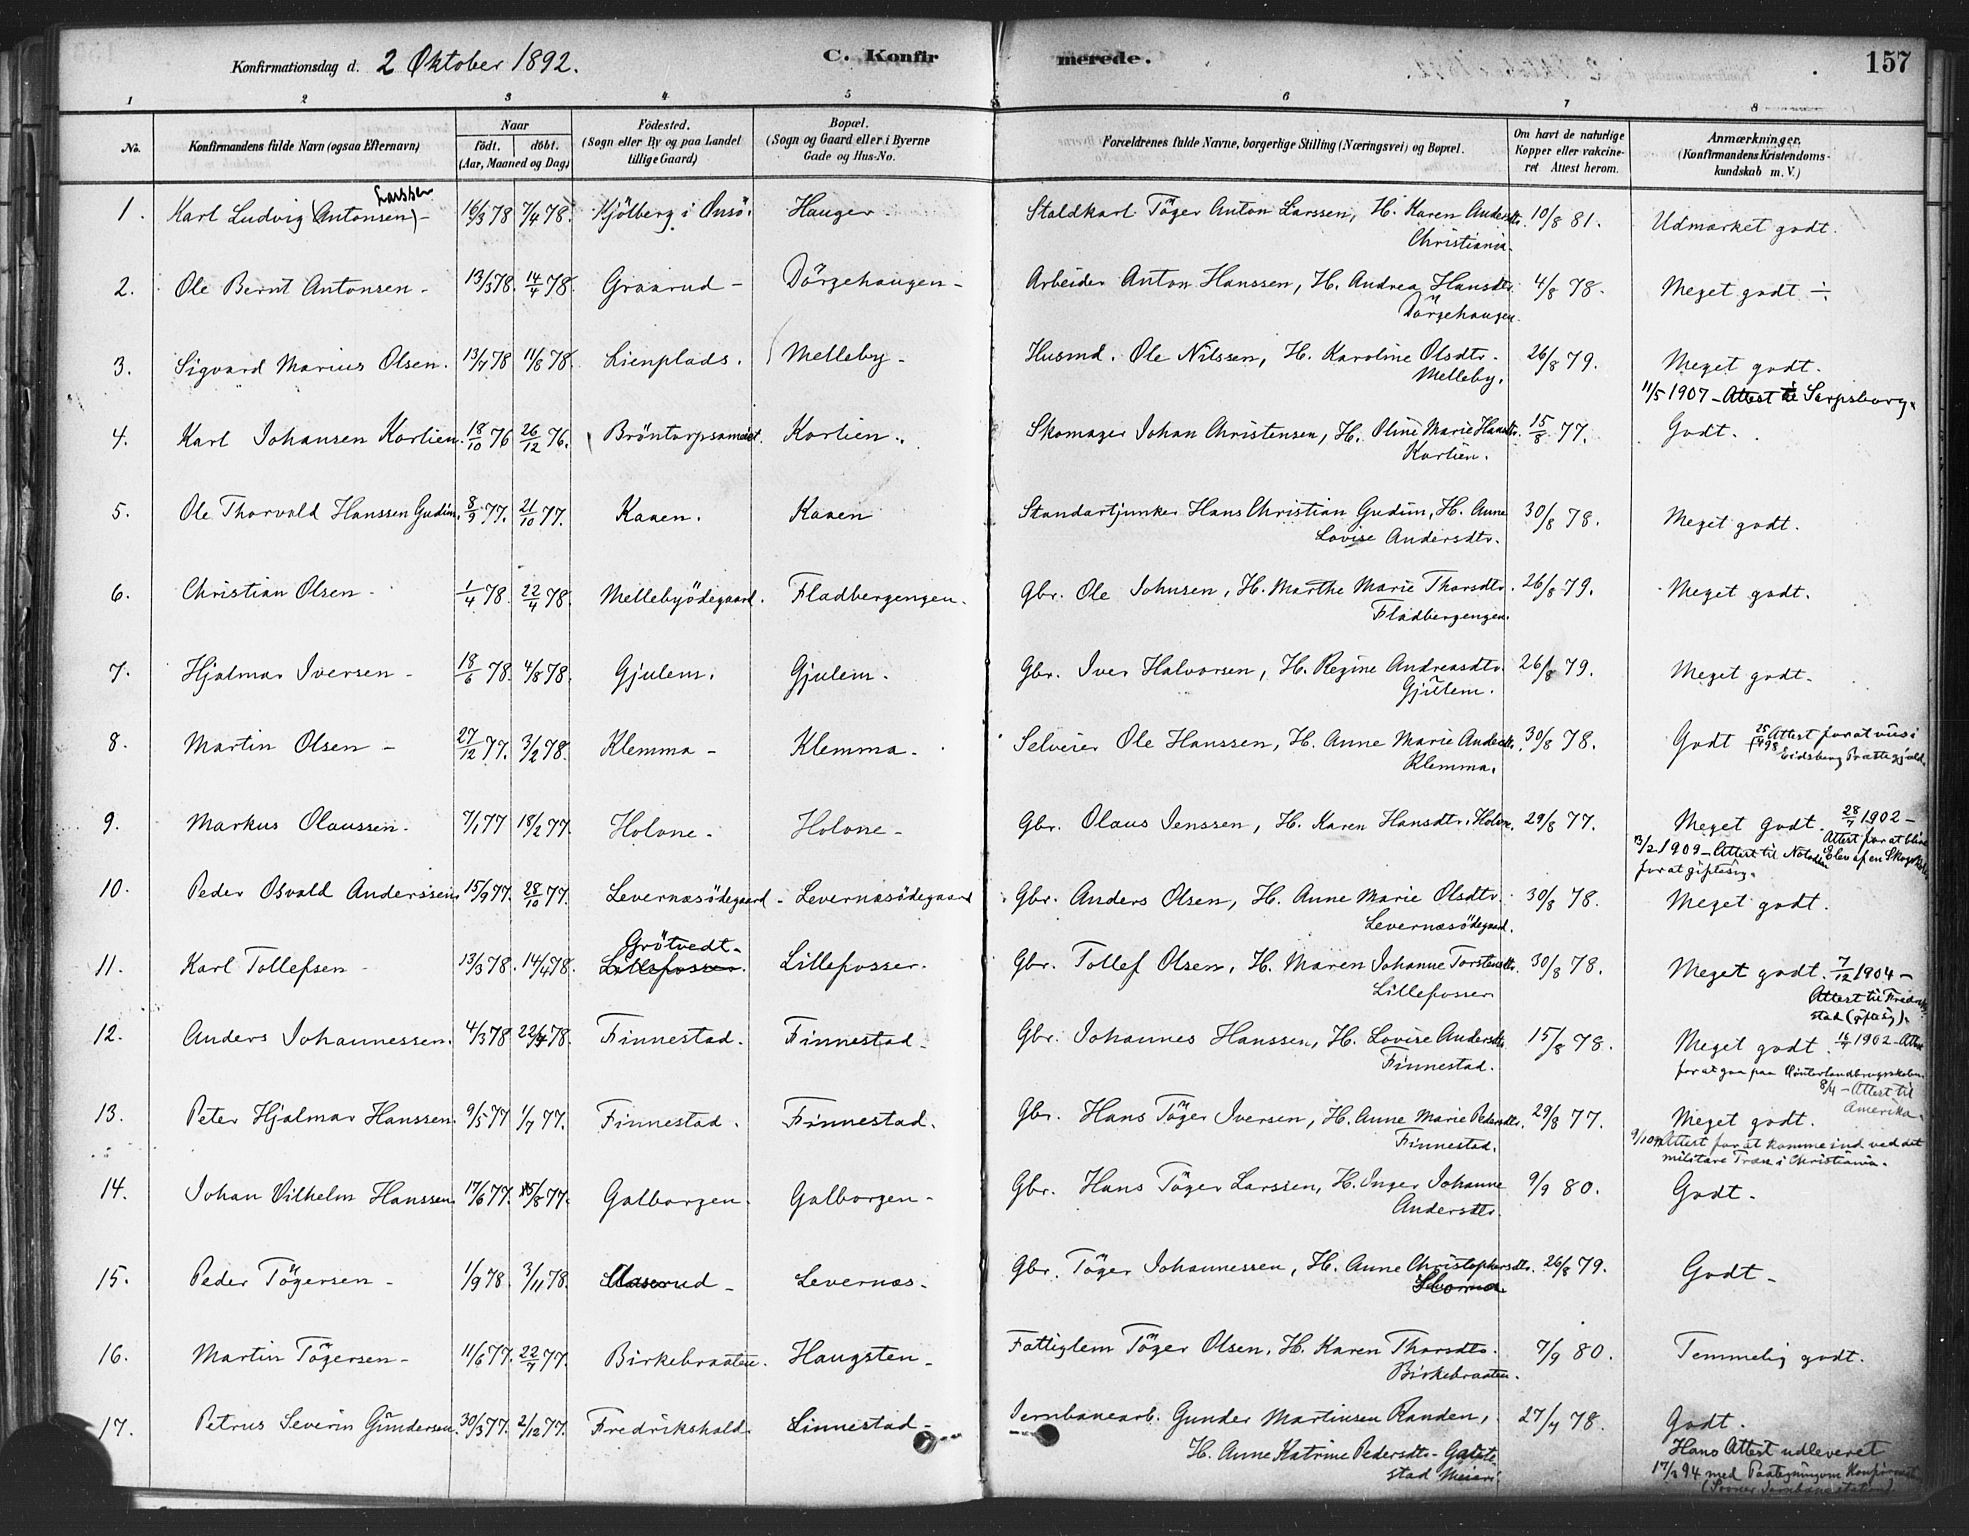 Konfirmationsdag d. 2 Oktober 1892. C. Konfirmerede. 157
1 2 3 4 5 6 7 8
No. Konfirmandens fulde Navn (ogsaa Efternavn) Naar født. døbt. (Aar, Maaned og Dag) Födested. (Sogn eller By og paa Landet tillige Gaard) Bopæl. (Sogn og Gaard eller i Byerne Gade og Hus-No. Forældrenes fulde Navne, borgerlige Stilling (Næringsvei) og Bopæl. Om havt de naturlige Kopper eller vakcineret Attest herom. Anmærkninger. (Konfirmandens Kristendomskundskab m. V.)
Larssen
1. Karl Ludvig (Antonsen) - 16/3 78 7/4 78. Kjölberg i Onsö. Hauger Staldkarl Töger Anton Larssen, H. Karen Andersdtr. 10/8 81. Udmærket godt.
Christiania.
2. Ole Bernt Antonsen - 13/3 78. 14/4 78. Graarud - Dörgehaugen - Arbeider Anton Hanssen, H. Andrea Hansdtr. 4/8 78. Meget godt ÷
Dörgehaugen.
3. Sigvard Marius Olsen. 13/7 78 11/8 78. Lienplads. Melleby - Husmd. Ole Nilssen, H. Karoline Olsdtr. 26/8 79. Meget godt.
Melleby. 11/5 1907 - Attest til Sarpsborg.
4. Karl Johansen Kortien. 18/10 76 26/12 76. Bröntorpsameiet. Kortien. Skomager Johan Christensen, H. Oline Marie Hansdtr. 15/8 77. Godt.
Kortien.
5. Ole Thorvald Hanssen Gudim. 8/9 77. 21/10 77. Kaaen. Kaaen Standartjunker Hans Christian Gudim, H. Anne 30/8 78. Meget godt.
Lovise Andersdtr.
6. Christian Olsen - 1/4 78. 22/4 78. Mellebyödegaard. Fladbergengen. Gbr. Ole Johnsen, H. Marthe Marie Thorsdtr. 26/8 79. Meget godt.
Fladbergengen.
7. Hjalmar Iversen - 18/6 78. 4/8 78. Gjulem. Gjulem. Gbr. Iver Halvorsen, H. Regine Andreasdtr. 26/8 79. Meget godt.
Gjulem.
8. Martin Olsen - 27/12 77. 3/2 78. Klemma - Klemma. Selveier Ole Hanssen, H. Anne Marie Andersdtr. 30/8 78. Godt 25/4 98 Attest for at vies i
Klemma. Eidsberg Præstegjæld.
9. Markus Olaussen. 7/1 77 18/2 77. Holone - Holone - Gbr. Olaus Jenssen, H. Karen Hansdtr. Holone. 29/8 77. Meget godt. 28/7 1902 -
Attest for at blive
13/2 1909 - Attest til Notodden Elev af en Skogskole
for at gifte sig.
10. Peder Osvald Anderssen. 15/9 77. 28/10 77. Levernæsödegaard - Levernæsödegaard Gbr. Anders Olsen, H. Anne Marie Olsdtr. 30/8 78. Meget godt.
Levernæsödegaard.
Grötvedt -
11. Karl Tollefsen - 13/3 78. 14/4 78. Lillefosser. Lillefosser. Gbr. Tollef Olsen, H. Maren Johanne Torstensdtr. 30/8 78. Meget godt. 7/12 1904 -
Lillefosser Attest til Fredrik-
stad (gifte sig).
12. Anders Johannessen. 4/3 78 22/4 78. Finnestad. Finnestad - Gbr. Johannes Hanssen, H. Lovise Andersdtr. 15/8 78. Meget godt. 1902 - Attest
Finnestad. for at gaa paa Vinterlandbrugsskolen.
8/4 - Attest til
Amerika.
13. Peter Hjalmar Hanssen. 9/5 77 1/7 77. Finnestad. Finnestad. Gbr. Hans Töger Iversen, H. Anne Marie Pedersdtr. 29/8 77. Meget godt.
Finnestad. Attest for at komme ind ved det
militære Træn i Christiania.
14. Johan Vilhelm Hanssen. 17/6 77. 15/8 77. Galborgen. Galborgen - Gbr. Hans Töger Larssen, H. Inger Johanne 9/9 80. Godt -
Andersdtr.
15. Peder Tögersen - 1/9 78. 3/11 78. Levernæs - Gbr. Töger Johannessen, H. Anne Christophersdtr. 26/8 79. Godt -
16. Martin Tögersen - 11/6 77. 22/7 77. Birkebraaten. Haugsten - Fattiglem Töger Olsen, H. Karen Thorsdtr. 7/9 80. Temmelig godt.
Birkebraaten.
17. Petrus Severin Gundersen. 30/3 77. 2/12 77. Fredrikshald. Linnestad - Jernbanearb. Gunder Martinsen Randen, 27/7 78. Godt.
H. Anne Katrine Pedersdtr. - Hans Attest udleveret
stad Meieri 17/3 94 med Paategning om Konfirmation
(Jernbanestation)